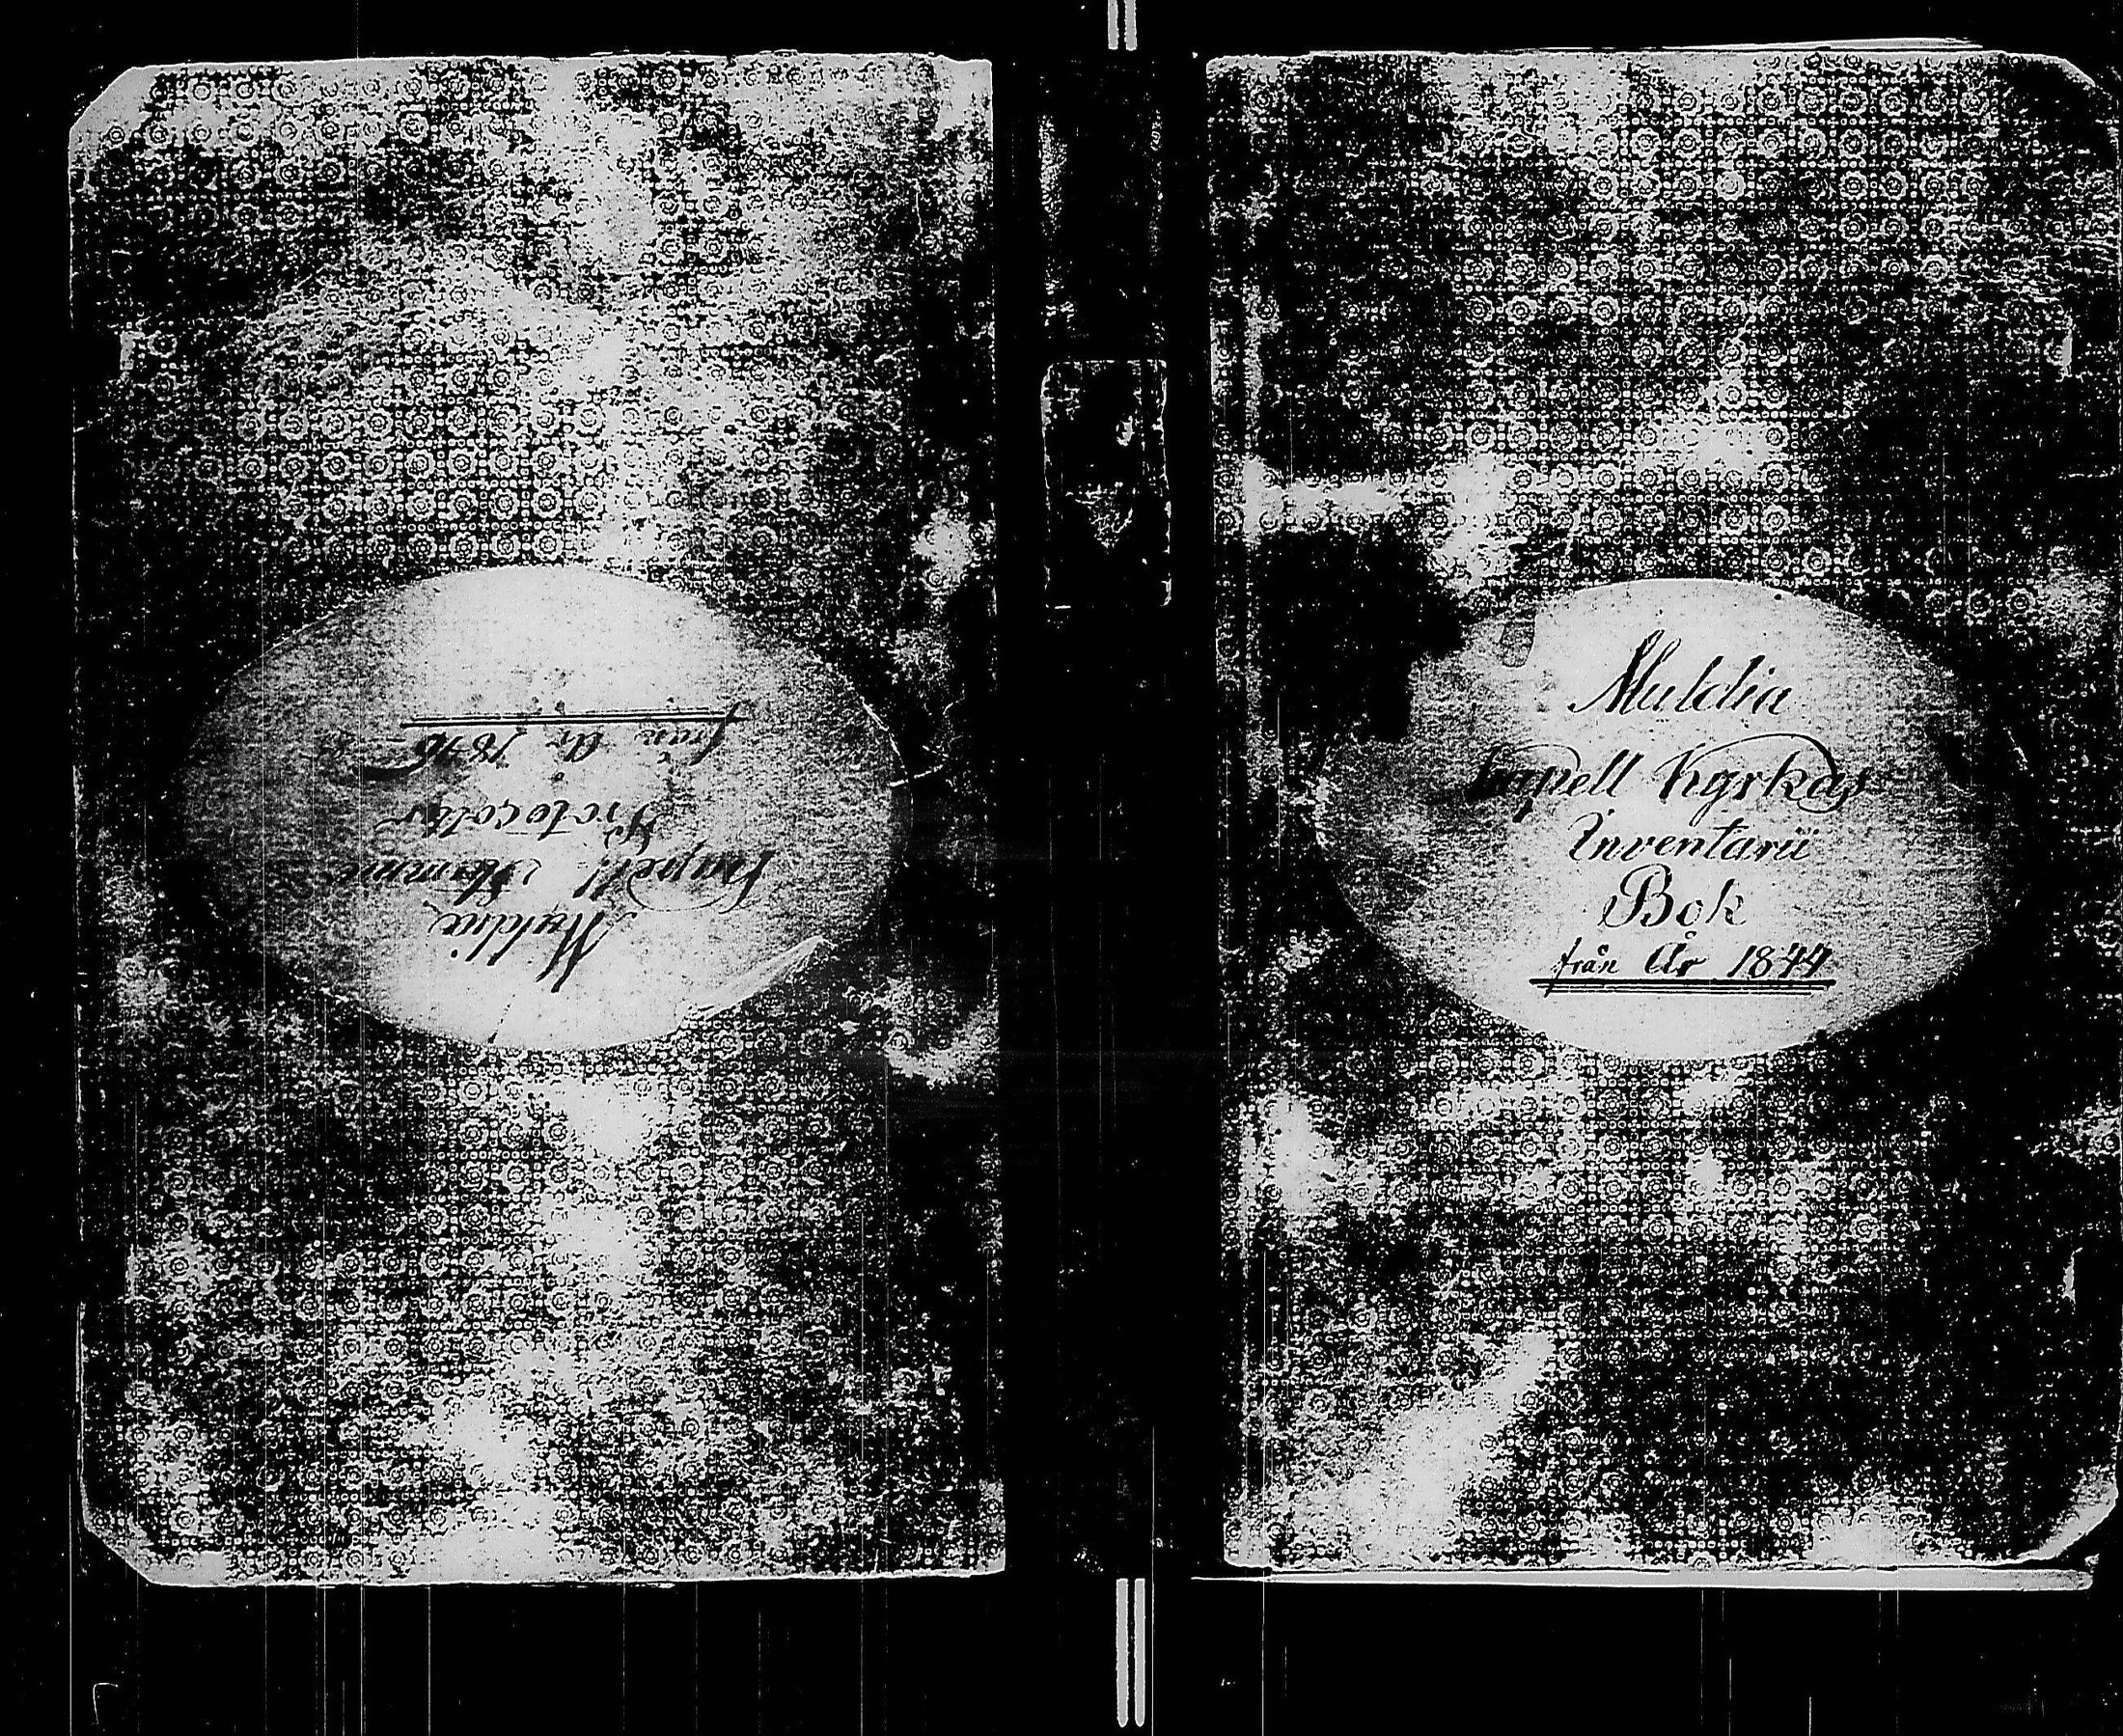 Muldia
Capell Stämme
Protocoller
från År 1846
Muldia
Capell Kyrkas
Inventarii
Bok
från År 1844